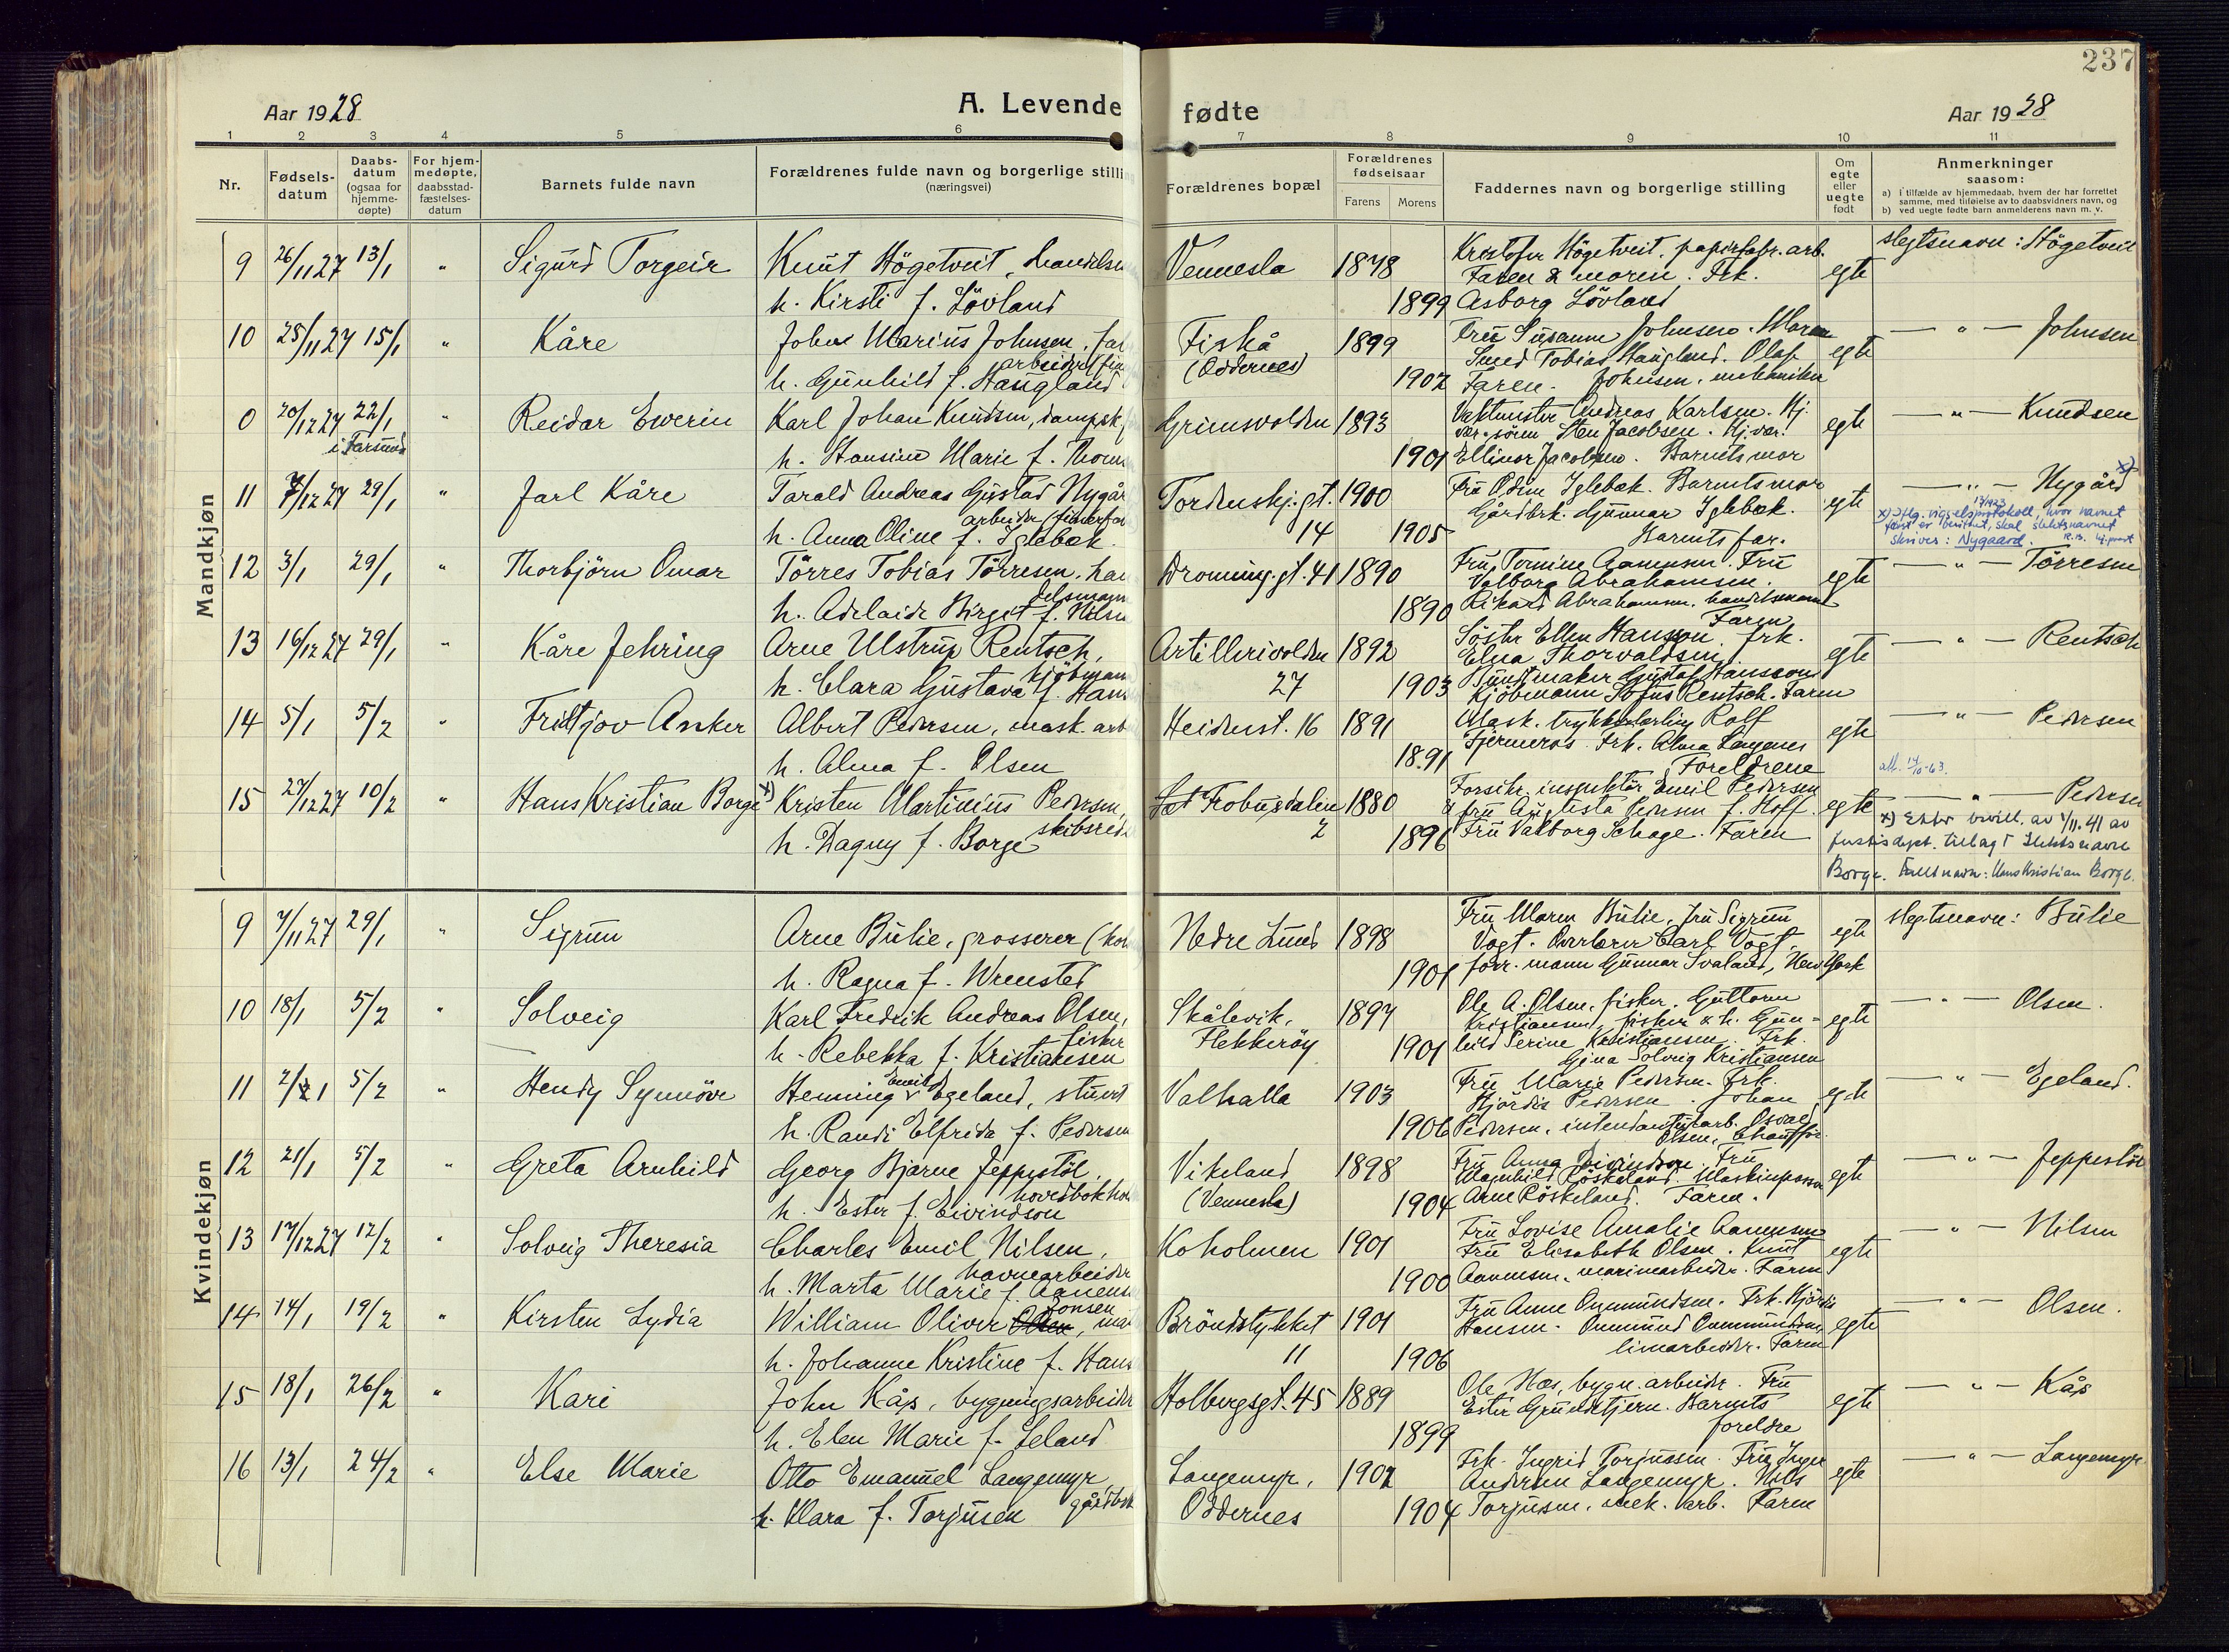 237
Aar 1928
A. Levende fødte
Aar 1928
1 2 3 4 5 6 7 8 9 10 11
Nr.
Fødsels-
datum
Daabs-
datum
(ogsaa for
hjemme-
døpte)
For hjem-
medøpte,
daabsstad-
fæstelses-
datum
Barnets fulde navn
Forældrenes fulde navn og borgerlige stilli
(næringsvei)
Forældrenes bopæl
Forældrenes
fødselsaar
Farens Morens
Faddernes navn og borgerlige stilling
Om
egte
eller
uegte
født
Anmerkninger
saasom:
a) i tilfælde av hjemmedaab, hvem der har forrettet
samme, med tilføielse av to daabsvidners navn, og
b) ved uegte fødte barn anmelderens navn m. v.
Mandkjøn
9 26/11 27 13/1 " Sigurd Torgeir
Knut Högetveit,
h. Kirsti f. Lövland
Vennesla 1878 1899
Kristofer Högetveit, papirfabr. arb.
Faren & moren. Frk.
Asborg Lövland
egte
slegtsnavn: Högetveit
10 25/11 27 15/1 " Kåre
Johan Marius Johnsen,
arbeider
h. Gunhild f. Haugland
Fiskå
(Oddernes)
1899 1902
Fru Susanne Johnsen. Maren
Smed Tobias Haugland. Olaf
Faren. Johnsen, mekaniker
egte
— " — Johnsen
0 20/12 27 22/1 " Reidar Ewerin
i Farsund
Karl Johan Knudsen, dampsk.
h. Hansine Marie f.
Grimsvolden 1893 1901
Vaktmester Andreas Karlsen. Hj.
vær. sönn Sten Jacobsen. Hj. vær.
Ellinor Jacobsen. Barnets mor
egte
— " — Knudsen
11 7/12 27 29/1 " Jarl Kåre
Tarald Andreas Gustad Nygår
arbeider
h. Anna Oline f. Iglebæk.
Tordenskj. gt.
14
1900 1905
Fru Odine Iglebæk. Barnets mor
Gårdbrk. Gunnar Iglebæk.
Barnets far.
egte
— " — Nygård x)
x) Iflg. vigselsprotokoll, hvor navnet
først er benittet, skal slektsnavnet
skrives: Nygaard.
12 3/1 29/1 " Thorbjörn Omar
Törres Tobias Törresen, han
delsmann
h. Adelaide Birget f. Nilsen
Dronning. gt. 41 1890 1890
Fru Tomine Aanensen. Fru
Valborg Abrahamsen.
Rikard Abrahamsen, handelsmann
Faren
egte
— " — Törresen
13 16/12 27 29/1 " Kåre Jehring
Arne Ulstrup Rentsch,
kjöbmann
h. Clara Gustava f. Hans
Artillerivolden
27
1892 1903
Söster Ellen Hansson, frk.
Elna Thorvaldsen
Buntmaker Gustaf Hansson
Kjöbmann Sofus Rentsch. Faren
egte
— " — Rentsch
14 5/1 5/2 " Fridtjov Anker
Albert Pedersen, mask. arb
h. Alma f. Olsen
Heidenst. 16 1891 1891
Mask. trykkerlærling Rolf
Fjermeros. Frk. Alma Langenes
Foreldrene
egte
— " — Pedersen
15 27/12 27 10/2 " Hans Kristian Borge x)
Kristen Martinius Pedersen,
skibsred
h. Dagny f. Borge
St Frobusdalen
2
1880 1896
Forsikr. inspektör Emil Pedersen
& fru Augusta Pedersen f. Hoff.
Fru Valborg Schage. Faren
egte
— " — Pedersen
x) Efter bevill. av 1/11. 41 av
justisdept. tillagt slektsnavn
Borge. Fullt navn: Hans Kristian Borge.
Kvindekjøn
9 7/11 27 29/1 " Sigrun
Arne Bulie, grosserer
h. Ragna f. Wrensted
Nedre Lund 1898 1901
Fru Maren Bulie, fru Sigrun
Vogt. Overlærer Carl Vogt.
forr. mann Gunnar Svaland, New York
egte
slegtsnavn: Bulie
10 18/1 5/2 " Solveig
Karl Fredrik Andreas Olsen,
fisker
h. Rebekka f. Kristiansen
Skålevik,
Flekkeröy
1897 1901
Ole A. Olsen, fisker. Guttorm
Kristiansen, fisker & h. Gun-
hild Serine Kristiansen. Frk.
Gina Solveig Kristiansen
egte
— " — Olsen.
11 2/1 5/2 " Hendy Synnöve
Henning Emil Egeland, stuert
h. Randi Elfrida f. Pedersen
Valhalla 1903 1906
Fru Marie Pedersen. Frk.
Hjördis Pedersen. Johan
Pedersen, intendanturarb. Osvald
Olsen, Chafför.
egte
— " — Egeland.
12 21/1 5/2 " Greta Arnhild
Georg Bjarne Jeppestöl,
hovedbokhol
h. Ester f. Eivindson
Vikeland
(Vennesla)
1898 1904
Fru Anna Eivindson. Fru
Magnhild Röskeland. Maskinpasser
Arne Röskeland. Faren.
egte
— " — Jeppestöl
13 17/12 27 12/2 " Solveig Theresia
Charles Emil Nilsen,
havnearbeider
h. Marta Marie f. Aanens
Koholmen 1901 1900
Fru Lovise Amalie Aanensen
Fru Elisabeth Olsen. Knut
Aanensen, marinearbeider. Faren
egte
— " — Nilsen
14 14/1 19/2 " Kirsten Lydia
William Oliver Olsen Jonsen,
h. Johanne Kristine f. Hans
Bröndstykket
11
1901 1906
Fru Anne Ommundsen. Frk. Hjördis
Hansen. Ommund Ommundsen,
limarbeider. Faren
egte
— " — Olsen.
15 18/1 26/2 " Kari
John Kås, bygningsarbeider
h. Elen Marie f. Leland
Holbergsgt. 45 1889 1899
Ole Næs, bygn. arbeider. Fru
Ester Grundetjern. Barnets
foreldre
egte
— " — Kås
16 13/1 24/2 " Else Marie
Otto Emanuel Langemyr,
gårdbrk
h. Klara f. Torjusen
Langemyr,
Oddernes
1902 1904
Frk. Ingrid Torjussen. Fru Inger
Andersen Langemyr. Nils
Torjusen, mek. varb. Faren
egte
— " — Langemyr